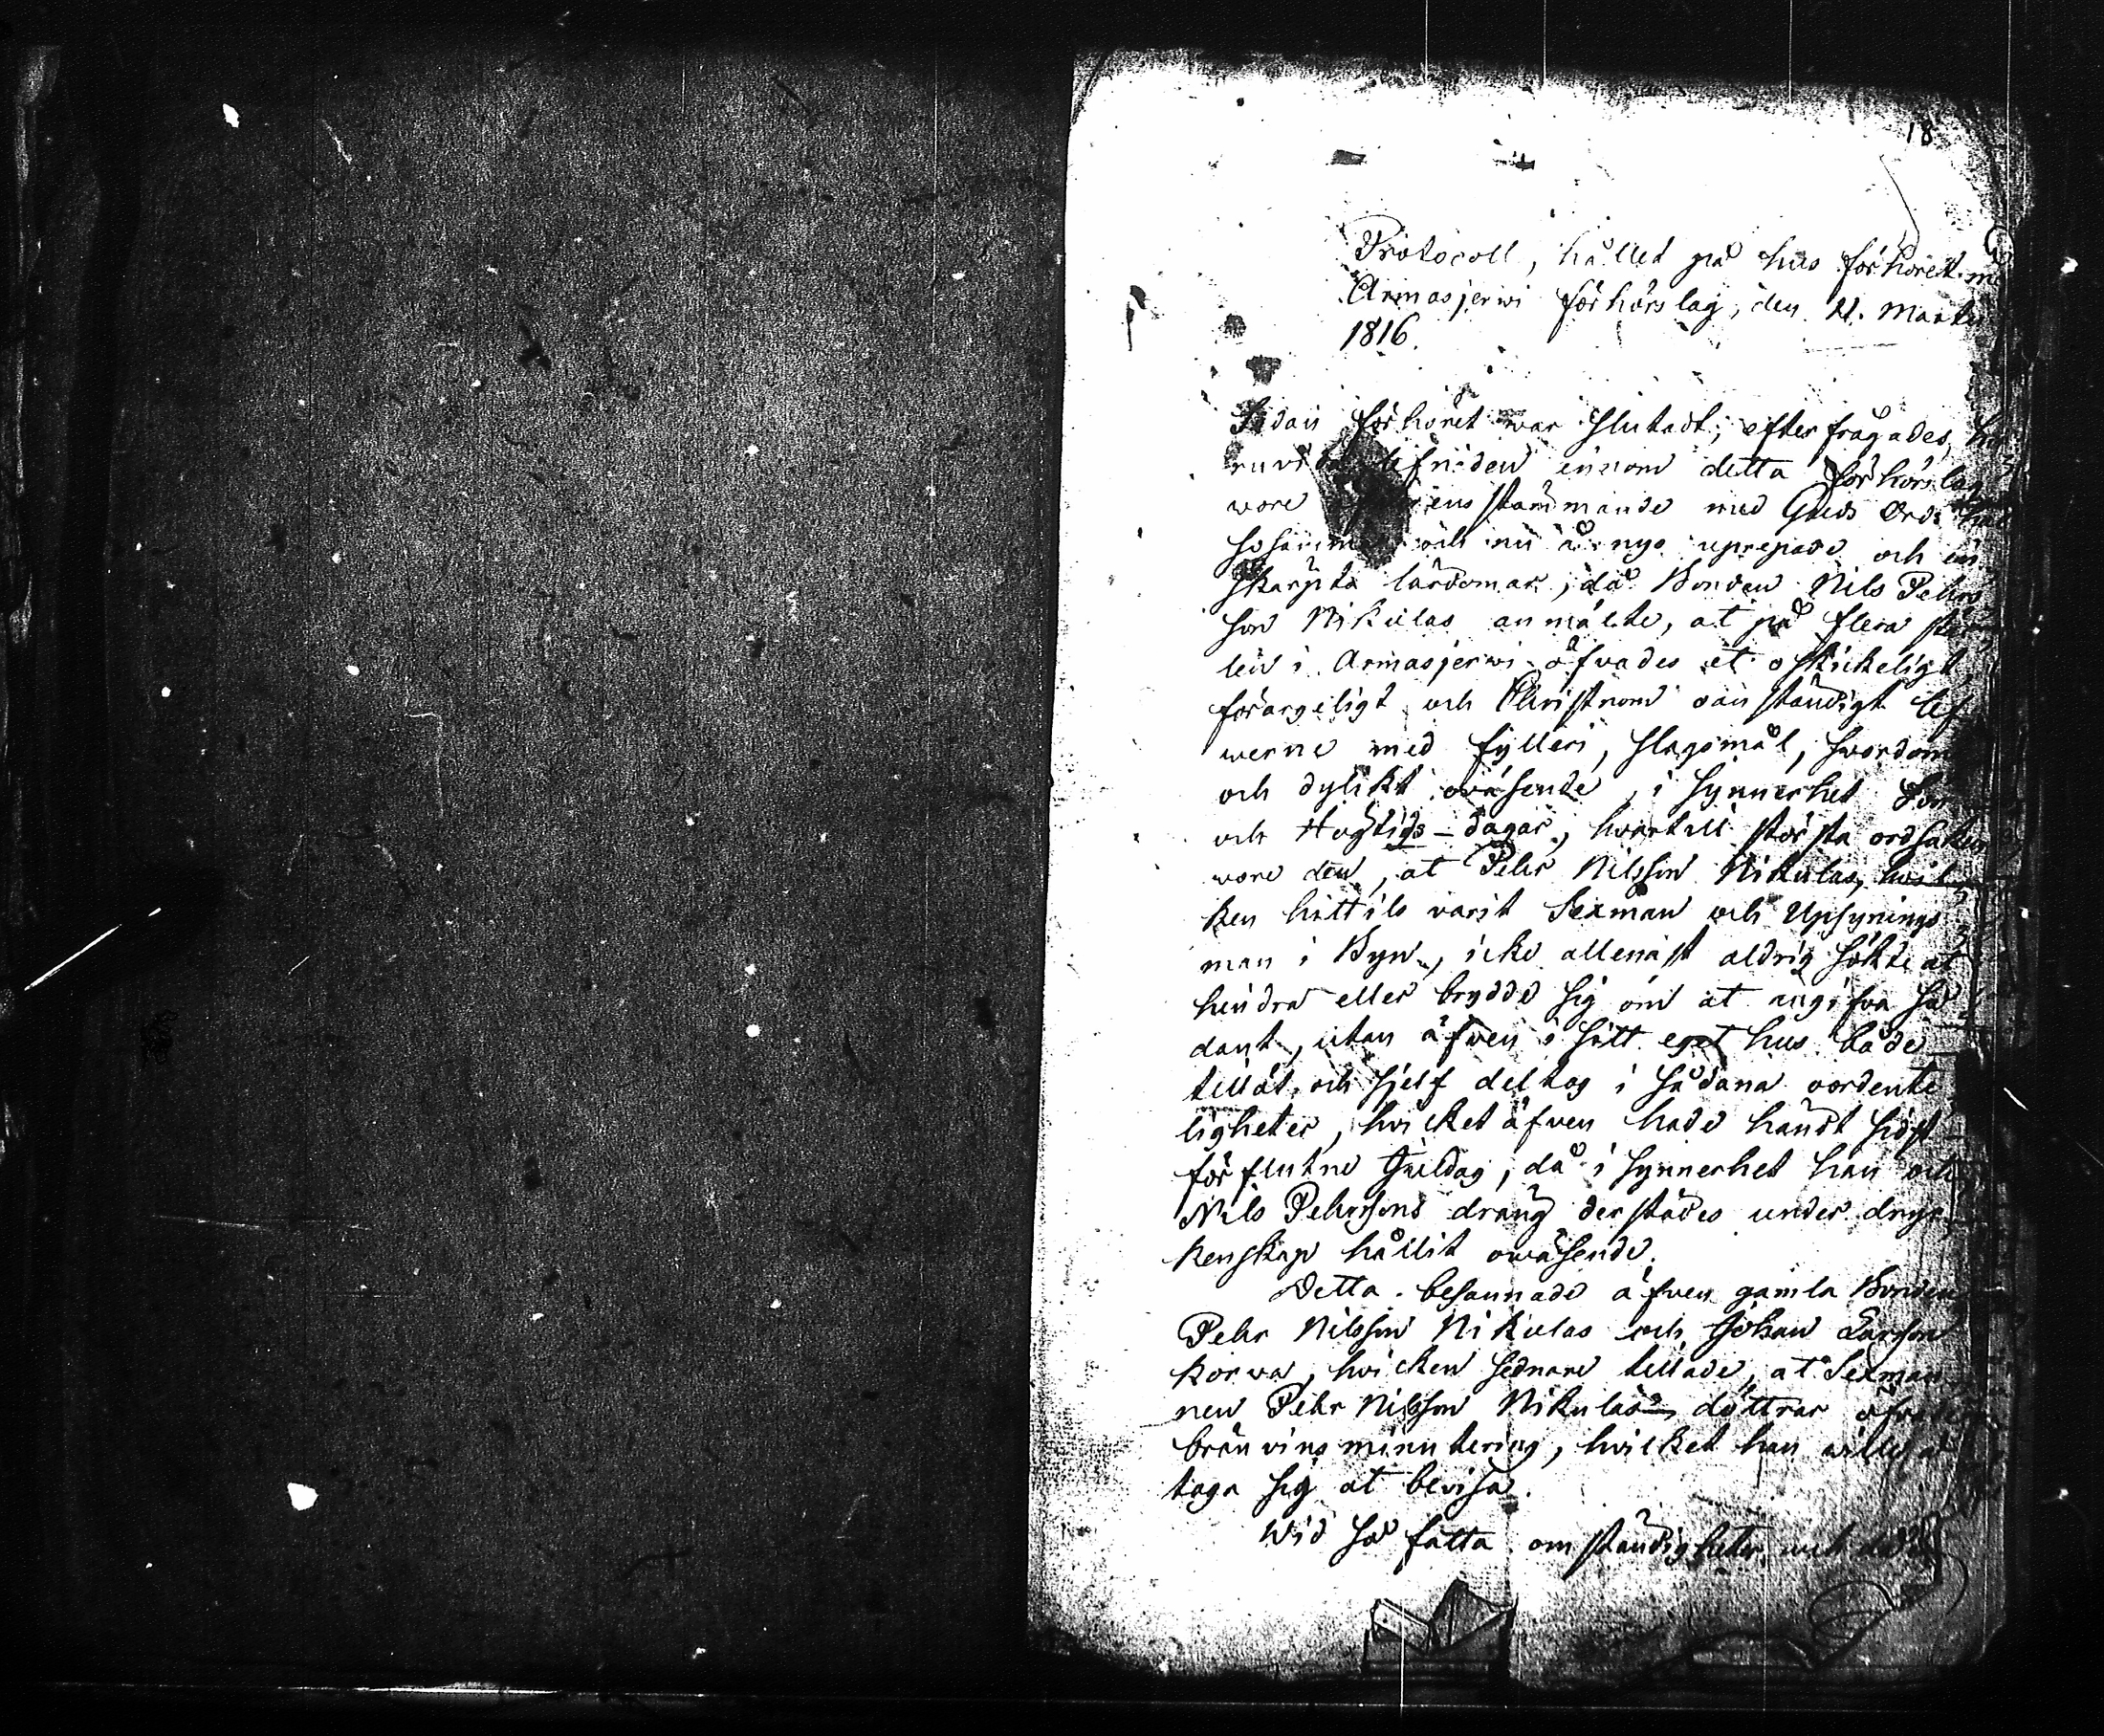 18
Protocoll, hållet på hus förhöret
Armasjerwi förhörslag, den 21. Martii
1816.
Sedan förhöret war slutadt, efterfrågades,
lefnaden innom detta förhörslag
wore enstämmande med Guds Ord
och nu å nyo uprepade och in
skärpta lärdomar, då Bonden Nils Pehrs
son Nikulas anmälte, at på flera stäl
len i Armasjerwi öfvades et oskickeligt,
förargeligt och Christnom oanständigt lef
werne med fylleri, slagsmål, swordom
och dylikt owäsende, i synnerhet Sön
och Högtids-dagar, hvartill största ordsaken
wore den, at Pehr Nilsson Nikulas, hvil
ken hittils varit Sexman och Upsynings
man i Byn, icke allenast aldrig sökte at
hindra eller brydde sig om at angifva så
dant, utan äfven i sitt eget hus både
tillåt och sjelf deltog i sådana oordente
ligheter, hvilket äfven hade händt sidst
förflutne Juldag, då i synnerhet han och
Nils Pehrssons dräng derstädes under dryc
kenskap hållit owäsende.
Detta besannade äfven gamla Bonden
Pehr Nilsson Nikulas och Johan Larsson
Korwa, hvilken sednare tillade, at Sexman
nen Pehr Nilsson Nikulas döttrar öfvade
bränvins minutering, hvilket han wille å
taga sig at bevisa.
Wid så fatta omständigheter och